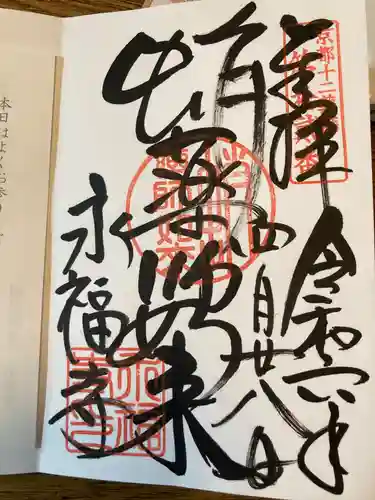 奉拝
令和六年
四月廿八日
蛸薬師如来
永福寺
京都十二薬
本日はよくお参り